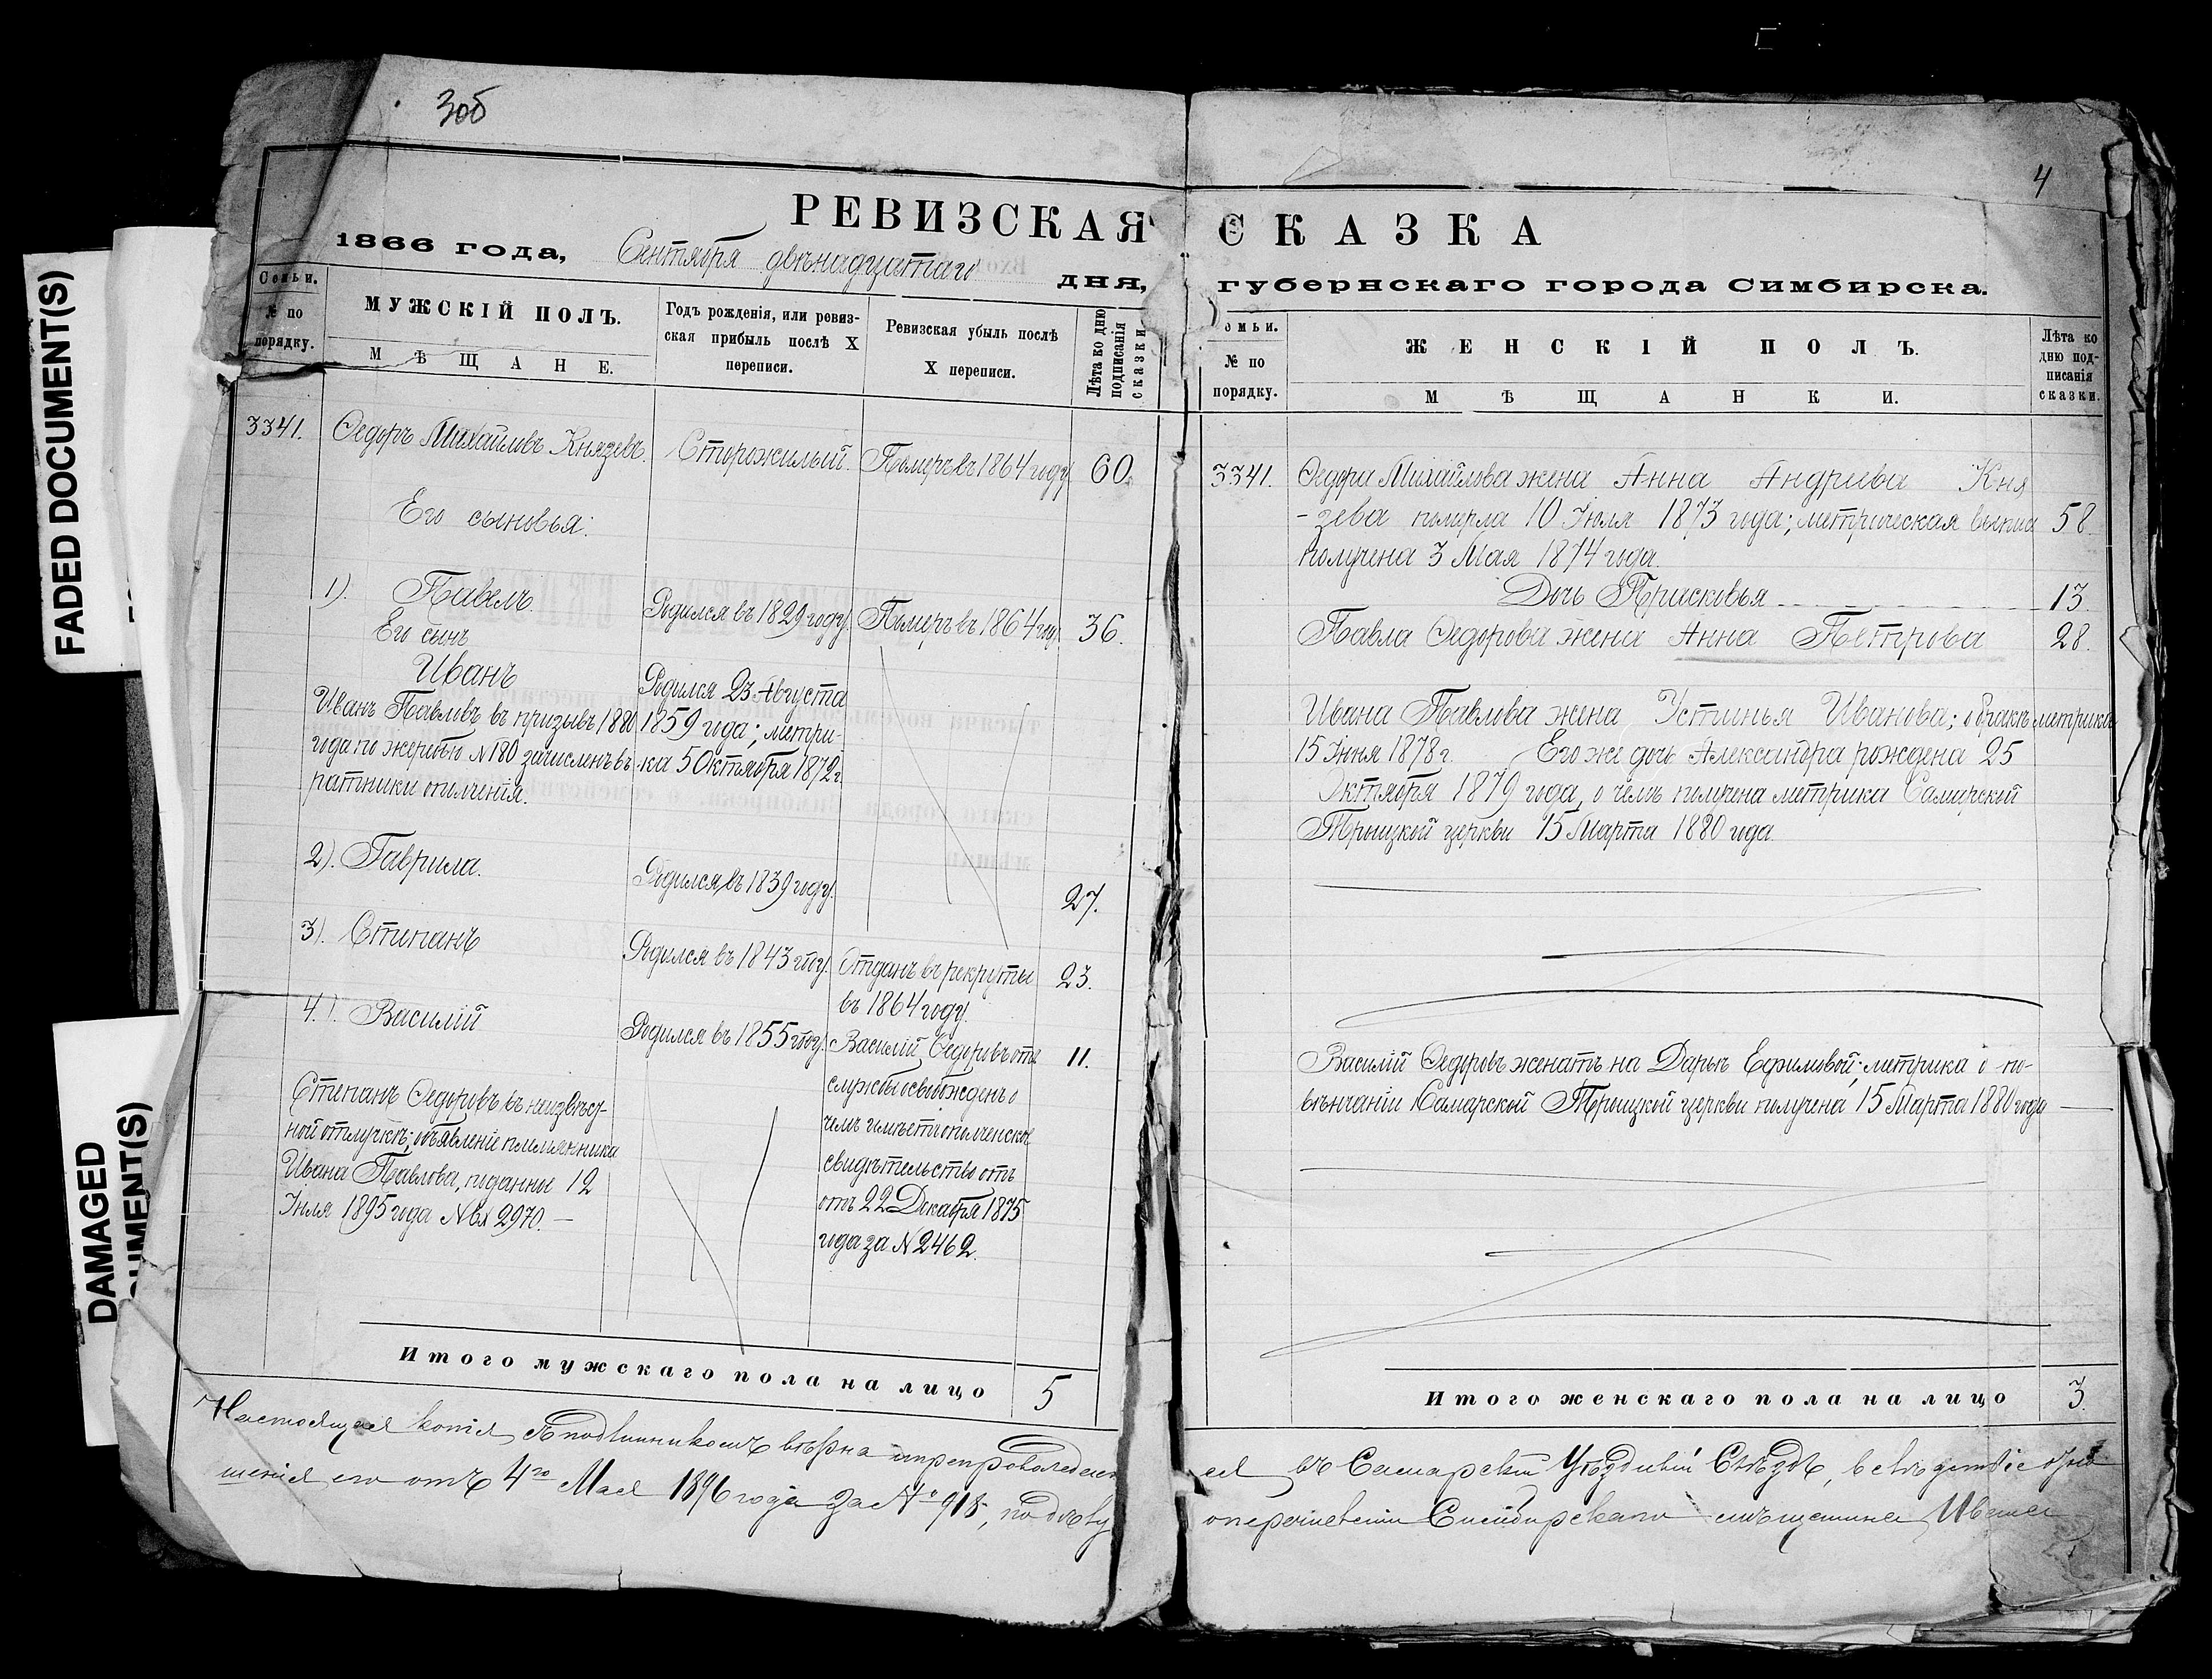 FADED DOCUMENT(S)
DAMAGED
DOCUMENT(S)
306
4
РЕВИЗСКАЯ СКАЗКА
1866 года, Сентября двѣнадцатаго дня, губернскаго города Симбирска.
Семьи.
№ по
порядку.
МУЖСКІЙ ПОЛЪ.
МѢЩАНЕ.
Годъ рожденія, или ревиз-
ская прибыль послѣ X
переписи.
Ревизская убыль послѣ
X переписи.
Лѣта ко дню
подписанія
сказки
3341.
Ѳедоръ Михайловъ Князевъ.
Сторожилый.
Померъ въ 1864 году
60.
Его сыновья:
1). Павелъ.
Родился въ 1829 году.
Померъ въ 1864 году.
36.
Его сынъ
Иванъ
Родился 23 Августа
1859 года; метри-
ка 5 Октября 1872 г.
Иванъ Павловъ въ призывъ 1880
года по жеребью № 180 зачисленъ въ
ратники ополченія.
2). Гаврила.
Родился въ 1839 году.
27.
3). Степанъ
Родился въ 1843 году.
Отданъ въ рекруты
въ 1864 году.
23.
4). Василій
Родился въ 1855 году.
Василій Ѳедоровъ отъ
службы освобожденъ о
чемъ имѣетъ ополченское
свидѣтельство отъ
отъ 22 Декабря 1875
года за № 2462.
11.
Степанъ Ѳедоровъ въ неизвѣст-
ной отлучкѣ; объявленіе племянника
Ивана Павлова, поданное 12
Іюля 1895 года № вх 2970. –
Итого мужскаго пола на лицо
5
омьи.
№ по
порядку.
ЖЕНСКІЙ ПОЛЪ.
МѢЩАНКИ.
Лѣта ко
дню под-
писанія
сказки.
3341.
Ѳедора Михайлова жена Анна Андреева Кня
-зева померла 10 Іюля 1873 года; метрическая выпись
58.
получена 3 Мая 1874 года.
Дочь Прасковья
13.
Павла Ѳедорова жена Анна Петрова
28.
Ивана Павлова жена Устинья Иванова; о бракѣ метрика
15 Іюня 1878 г. Его же дочь Александра рождена 25
Октября 1879 года, о чемъ получена метрика Самарской
Троицкой церкви 15 Марта 1880 года.
Василій Ѳедоровъ женатъ на Дарьѣ Ефимовой; метрика о по-
вѣнчаніи Самарской Троицкой церкви получена 15 Марта 1880 года
Итого женскаго пола на лицо
3.
Настоящая копія съ подлинникомъ вѣрна и препровождает ся въ Самарскій Уѣздный Съѣздъ, вслѣдствіе отно
шенія его отъ 4го Мая 1896 года за № 918, по дѣлу о перечисленіи Симбирскаго мѣщанина Ивана